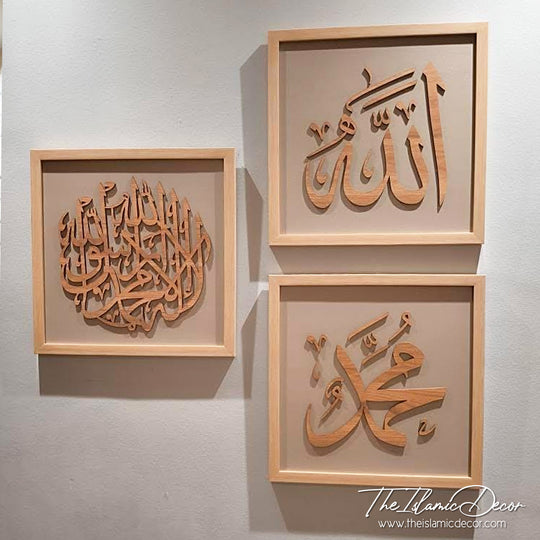 لا إله إلا الله محمد رسول الله
الله
محمد
The Islamic Decor
www.theislamicdecor.com